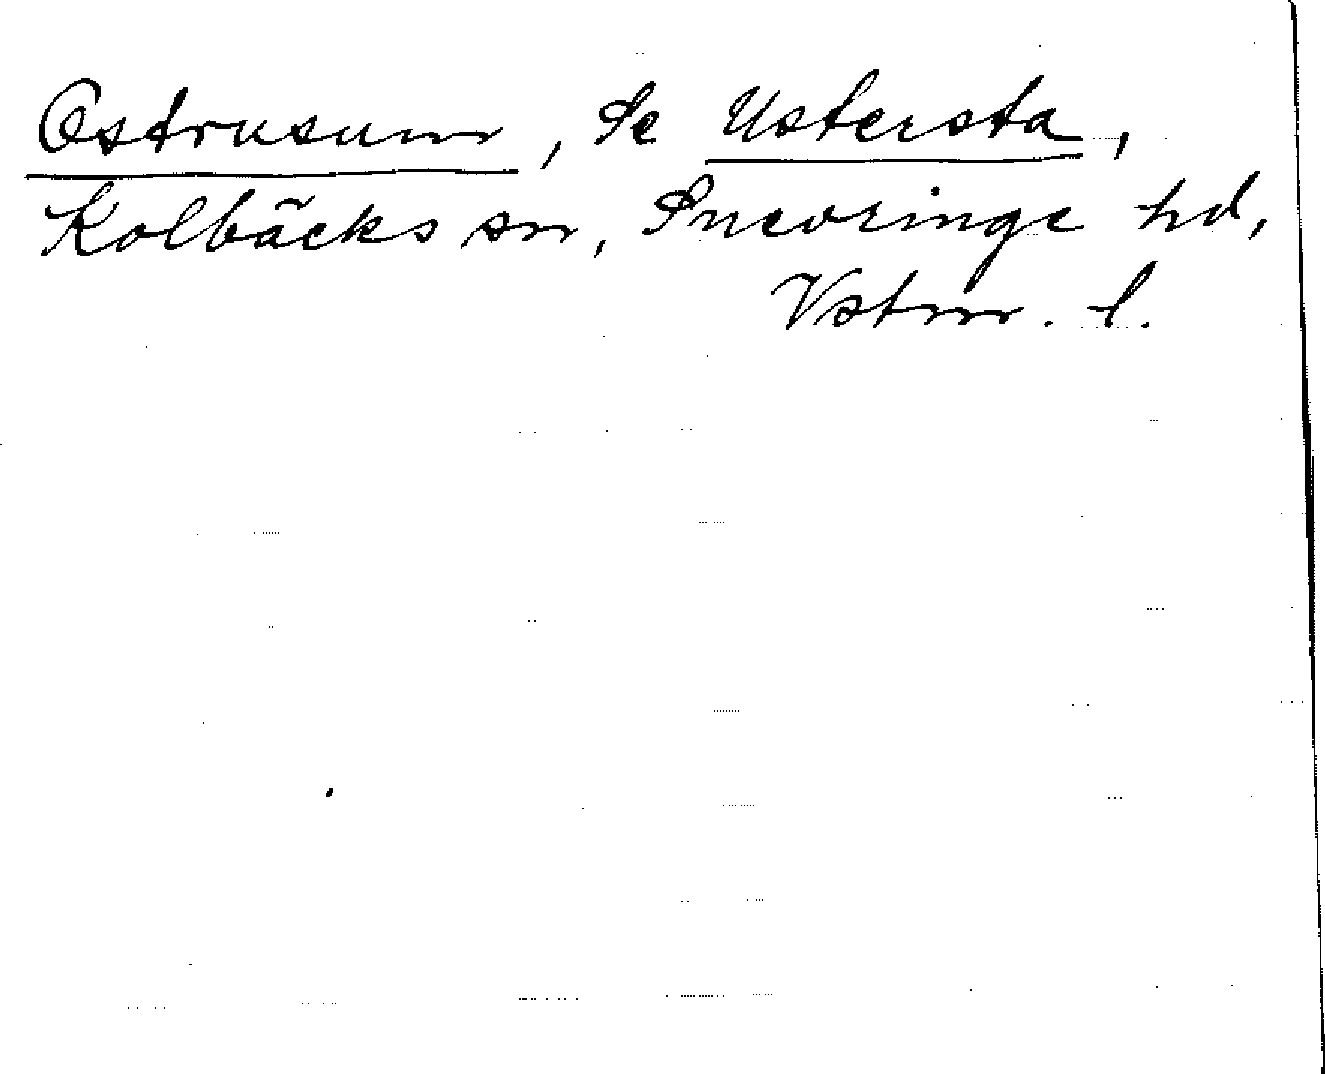 Ostrusum, Se Ustersta,
Kolbäcks sn, Snevringe hd,
Vstm. l.